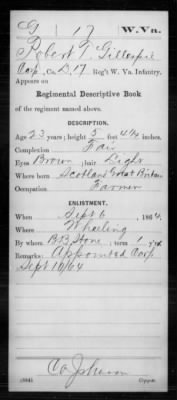 G 17 W. Va.
Robert T. Gillespie
Corp., Co. D, 17 Reg't W. Va. Infantry.
Appears on
Regimental Descriptive Book
of the regiment named above.
DESCRIPTION.
Age 23 years; height 5 feet 4 1/4 inches.
Complexion Fair
Eyes Brown; hair Light
Where born Scotland Great Britain
Occupation Farmer
ENLISTMENT.
When Sept 6, 1864.
Where Wheeling
By whom B.B. Stone; term 1 y'rs.
Remarks: Appointed Corp
Sept 10/64
Copyist.